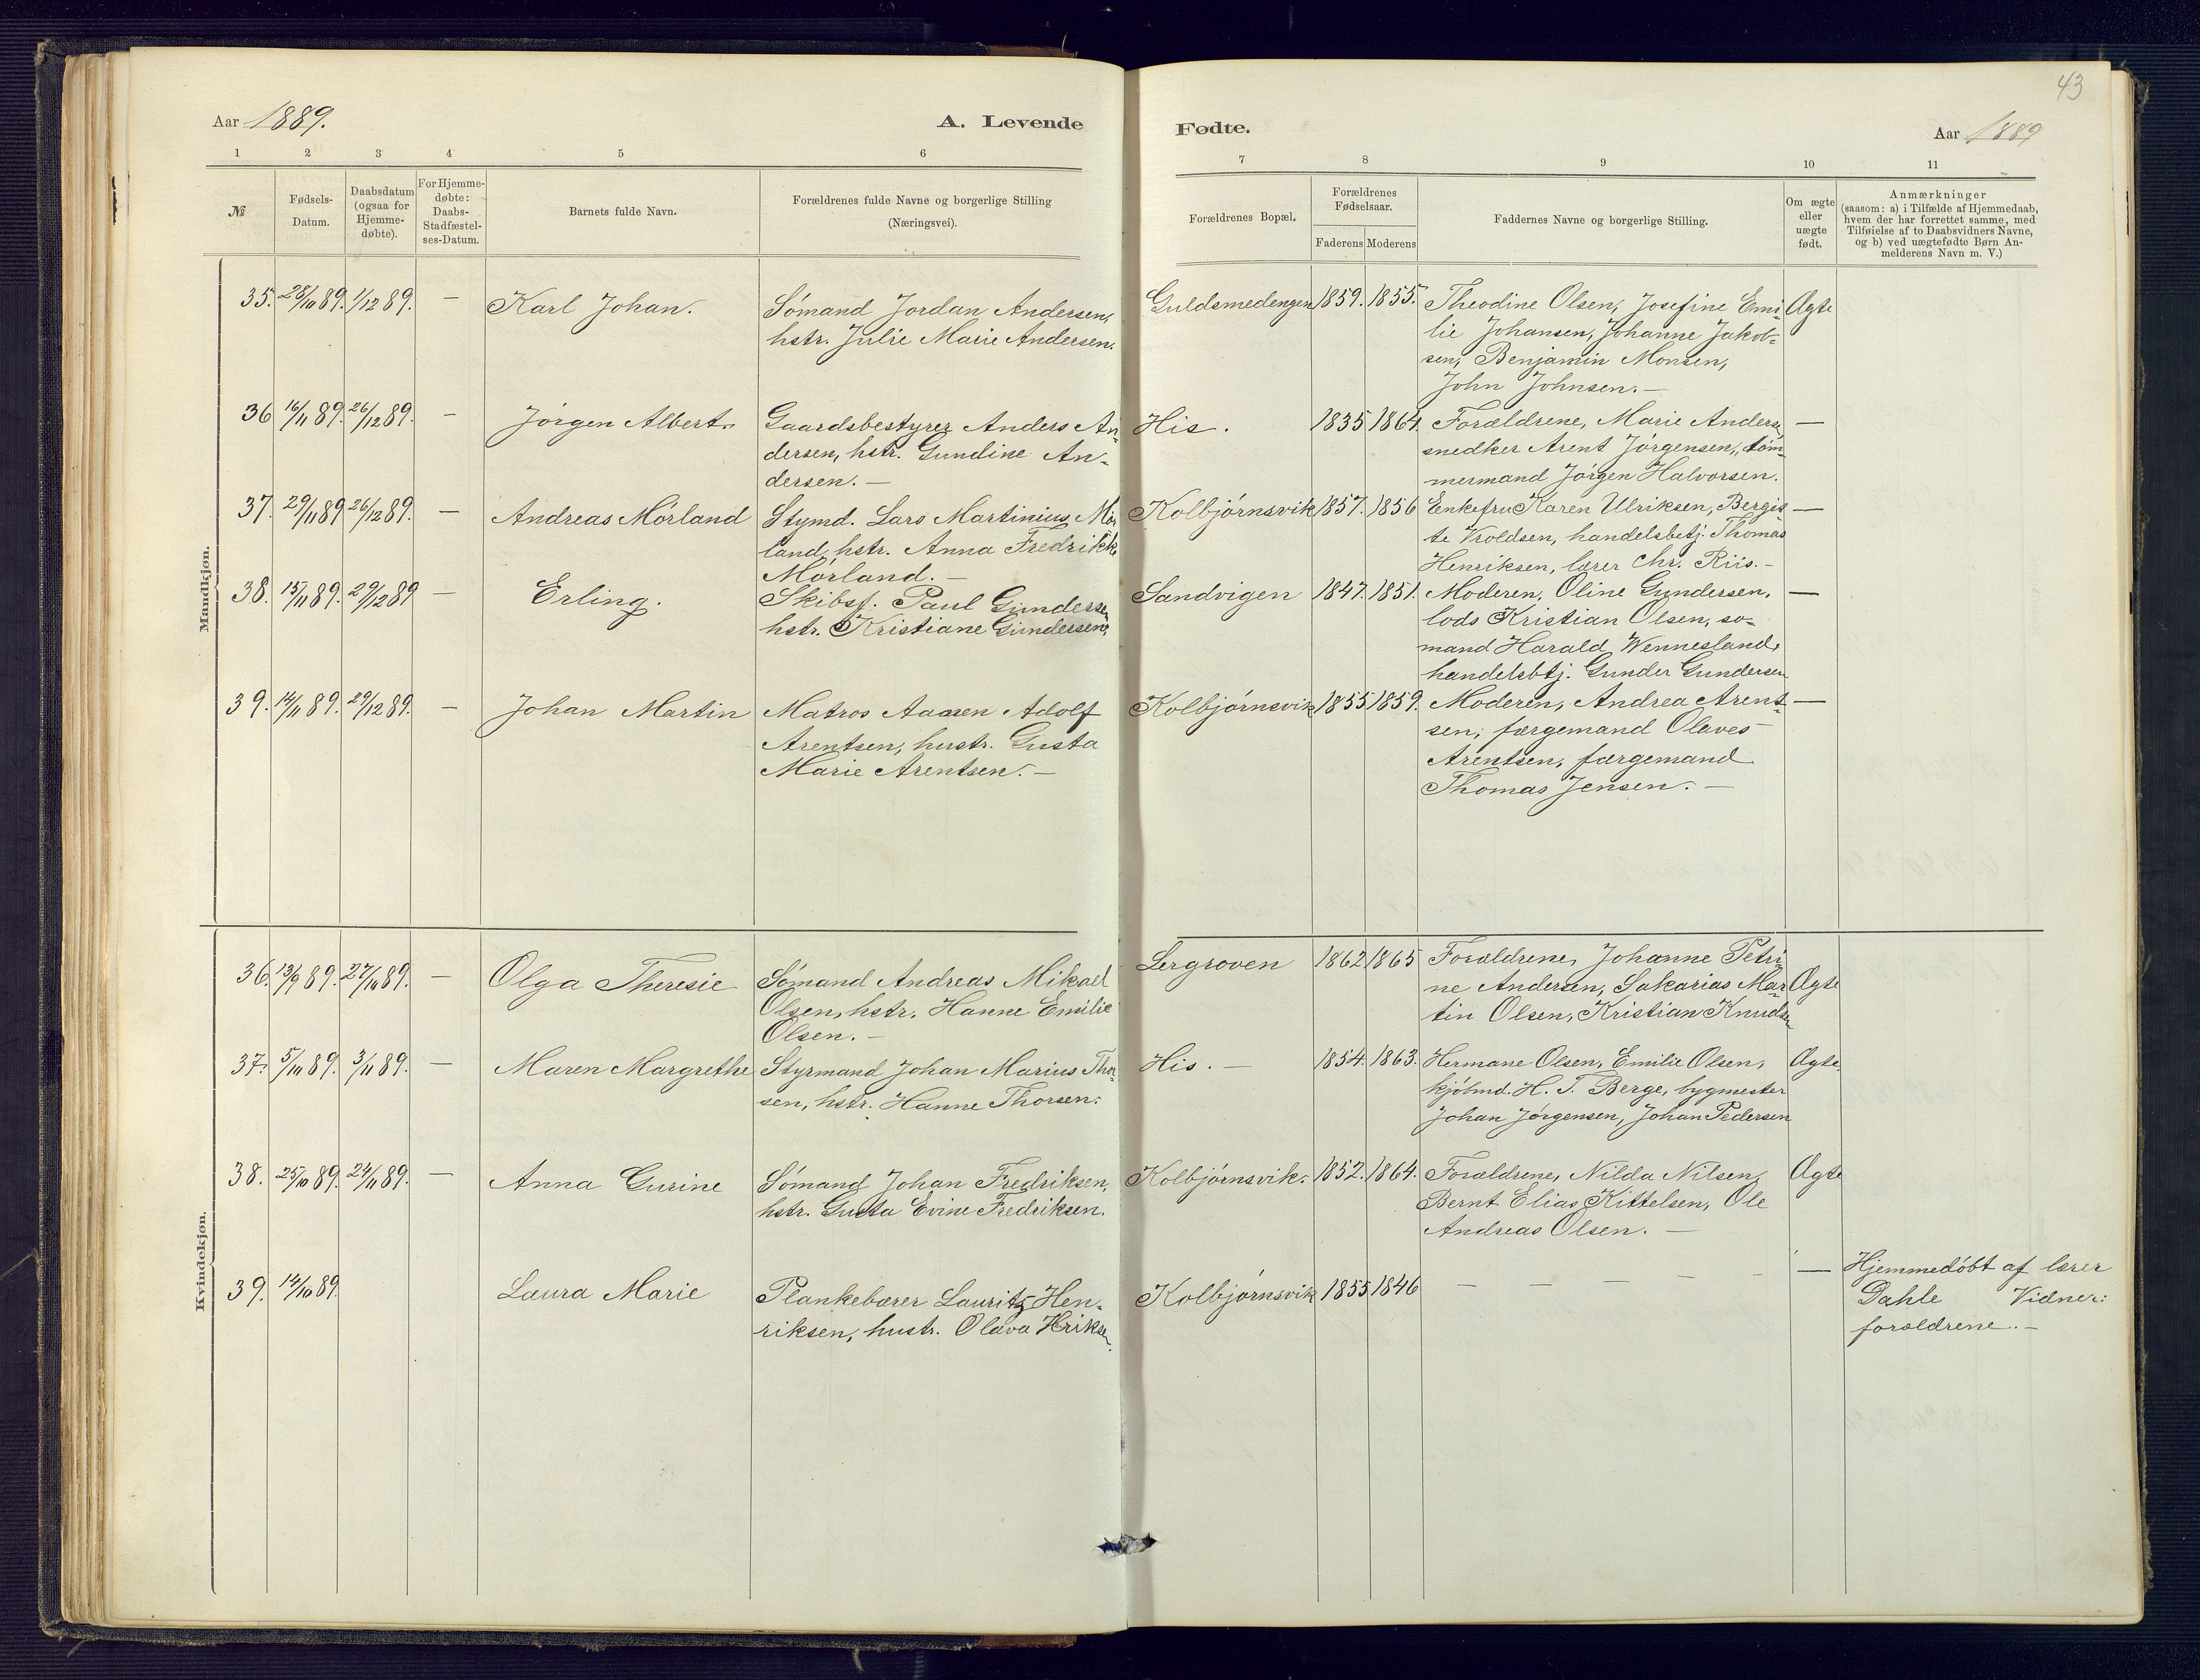 43
Aar 1889.
A. Levende
Fødte.
Aar 1889
1 2 3 4 5 6
7 8 9 10 11
№
Fødsels-
Datum.
Daabsdatum
(ogsaa for
Hjemme-
døbte).
For Hjemme-
døbte:
Daabs-
Stadfæstel-
ses-Datum.
Barnets fulde Navn.
Forældrenes fulde Navne og borgerlige Stilling
(Næringsvei).
Forældrenes Bopæl.
Forældrenes
Fødselsaar.
Faderens Moderens
Faddernes Navne og borgerlige Stilling.
Om ægte
eller
uægte
født.
Anmærkninger
(saasom: a) i Tilfælde af Hjemmedaab,
hvem der har forrettet samme, med
Tilføielse af to Daabsvidners Navne,
og b) ved uægtefødte Børn An-
melderens Navn m. V.)
Mandkjøn.
35. 28/10 89. 1/12 89. — Karl Johan.
Sømand Jordan Andersen,
hstr. Julie Marie Andersen.
Guldsmedengen 1859. 1855.
Theodine Olsen, Josefine Emi-
lie Johansen, Johanne Jakob-
sen, Benjamin Monsen,
John Johnsen. —
Ægte
36 16/11 89. 26/12 89. — Jørgen Albert.
Gaardsbestyrer Anders An-
dersen, hstr. Gundine An-
dersen. —
His. 1835 1864.
Forældrene, Marie Anders,
snedker Arent Jørgensen, tøm-
mermand Jørgen Halvorsen.
—
37. 29/11 89 26/12 89. — Andreas Mørland
Stymd. Lars Martinius Mør
land, hstr. Anna Fredrikke
Mørland. —
Kolbjørnsvik 1857. 1856
Enkefru Karen Ulriksen, Bergit-
te Vroldsen, handelsbetj. Thomas
Henriksen, lærer Chr. Riis. —
—
38. 15/11 89. 29/12 89 — Erling.
Skibsf. Paul Gundersen
hstr. Kristiane Gundersen,
Sandvigen 1847. 1851.
Moderen, Oline Gundersen,
lods Kristian Olsen, sø-
mand Harald Wennesland,
handelsbtj. Gunder Gundersen
—
39. 14/11 89. 29/12 89. — Johan Martin
Matros Aanen Adolf
Arentsen, hustr. Gusta
Marie Arentsen. —
Kolbjørnsvik 1855 1859.
Moderen, Andrea Arent-
sen, færgemand Olaves
Arentsen, færgemand
Thomas Jensen. —
—
Kvindekjøn.
36. 13/9 89. 27/10 89. — Olga Theresie
Sømand Andreas Mikael
Olsen, hstr. Hanne Emilie
Olsen. —
Lergroven 1862 1865
Forældrene, Johanne Petri-
ne Andersen, Sakarias Mar-
tin Olsen, Kristian Knudsen
Ægte
37. 5/10 89. 3/11 89. — Maren Margrethe
Styrmand Johan Marius Thor-
sen, hstr. Hanne Thorsen.
His. — 1854. 1863.
Hermane Olsen, Emilie Olsen,
kjøbmd. H. T. Berge, bygmester
Johan Jørgensen, Johan Pedersen
Ægte.
38. 25/10 89. 24/11 89. — Anna Gurine
Sømand Johan Fredriksen,
hstr. Gusta Evine Fredriksen.
Kolbjørnsvik. 1852. 1864.
Forældrene, Nilda Nilsen,
Bernt Elias Kittelsen, Ole
Andreas Olsen. —
Ægte
39. 14/10 89. Laura Marie
Plankebærer Lauritz Hen-
riksen, hustr. Olava Hriksen.
Kolbjørnsvik 1855 1846
— — — — — —
Hjemmedøbt af lærer
Dahle Vidner:
forældrene. —